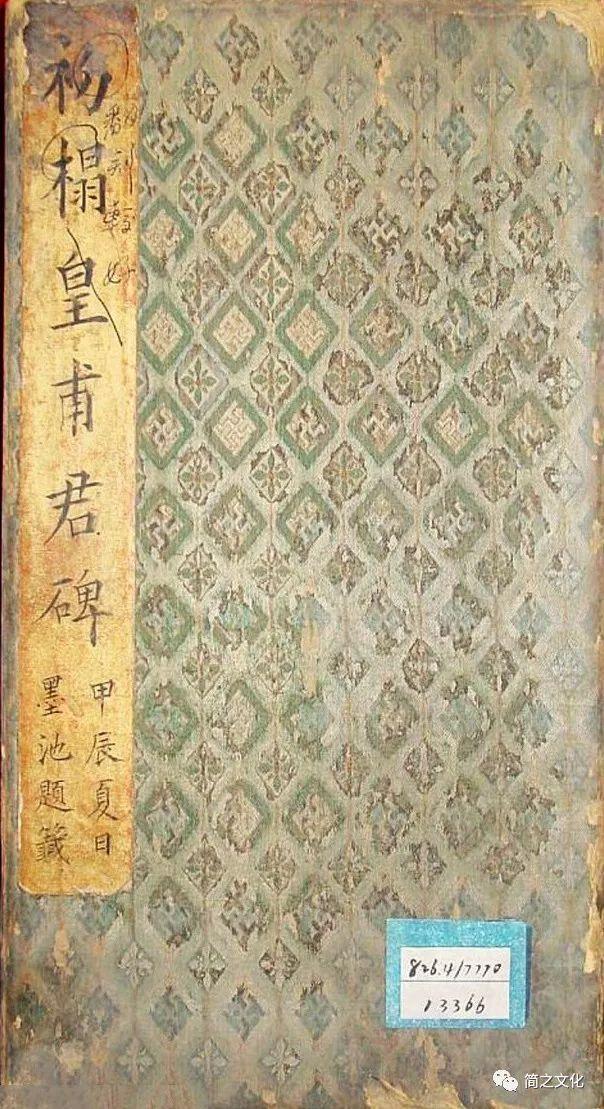 初榻皇甫君碑
甲辰夏日
墨池題籤
826.4/7770
13366
简之文化